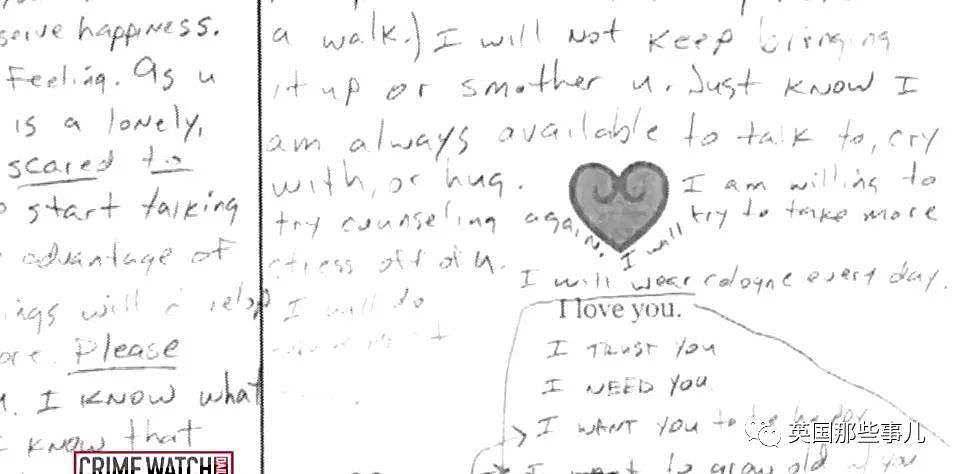 serve happiness.
Feeling. As u
is a lonely,
scared to
start talking
advantage of
ings will
Please
I KNOW what
KNOW that
a walk.) I will NOT keep bringing
it up or smother u. Just KNOW I
am always available to talk to, cry
with, or hug. I am willing to
try counseling again. I will try to take more
stress off of u.
I will wear cologne every day.
I will do
I love you.
I TRUST YOU
I NEED YOU
I WANT YOU to be happy
I want to grow old
CRIME WATCH
英国那些事儿